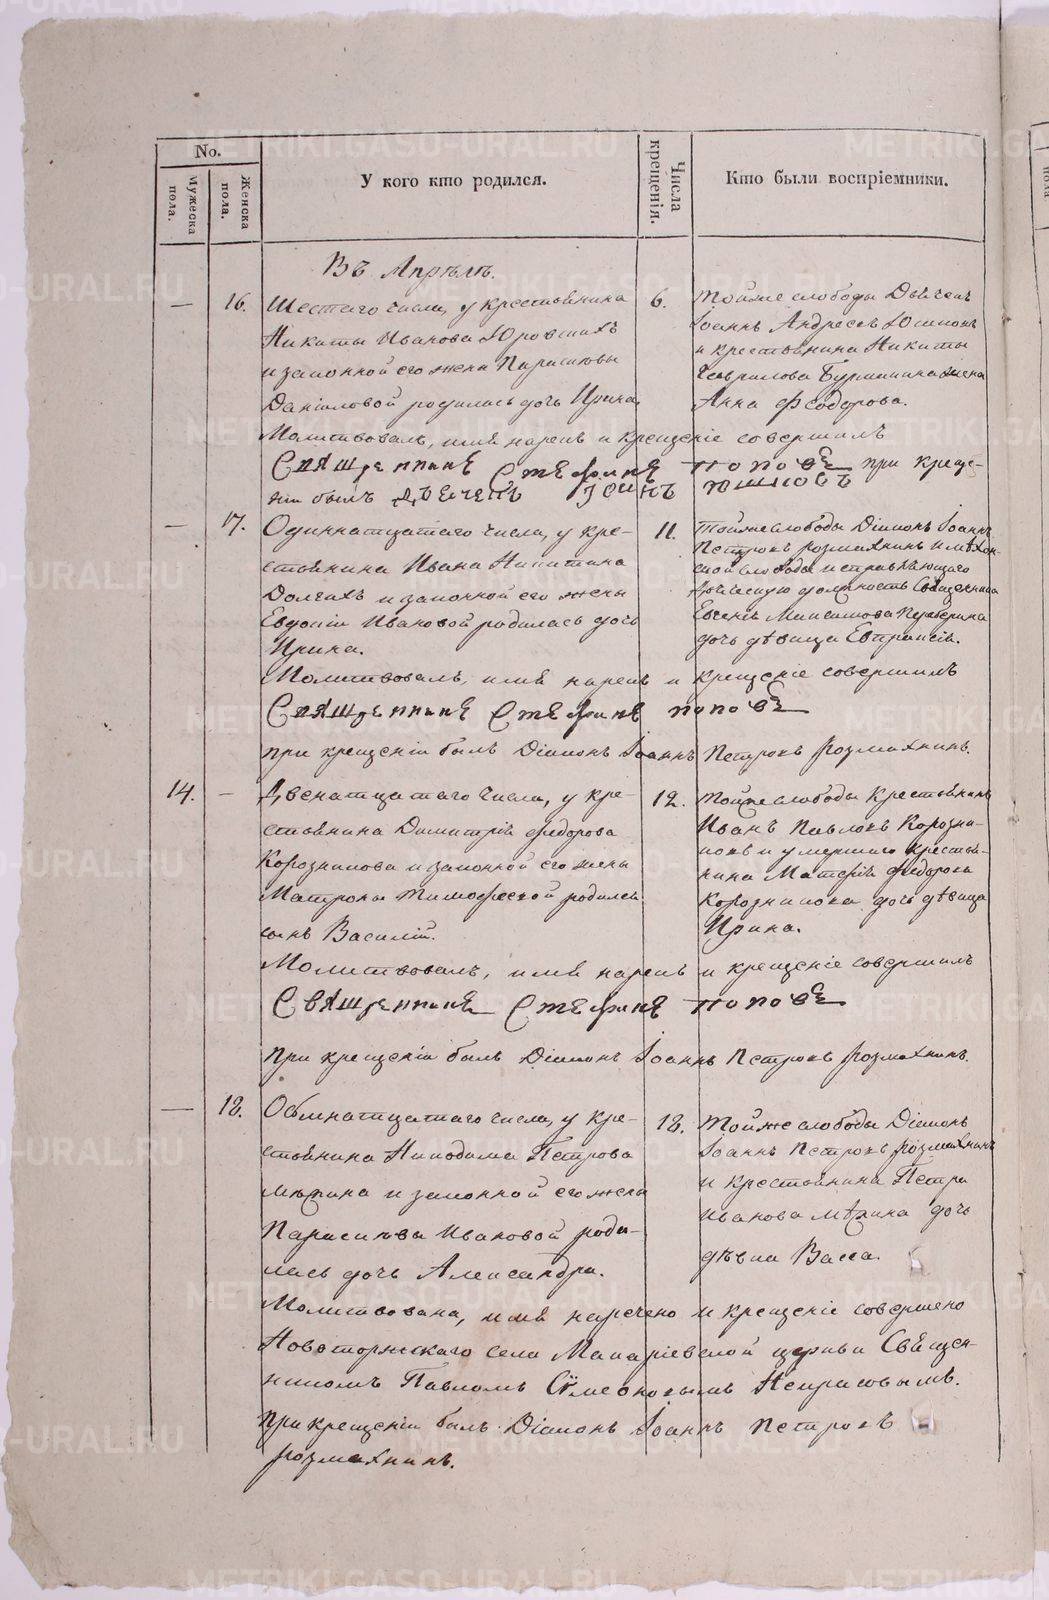 No.
Мужеска пола.
Женска пола.
У кого кто родился.
Числа крещенія.
Кто были воспріемники.
Въ Апрѣлѣ.
— 16. Шестаго числа, у крестьянина
Никиты Иванова Юровскихъ
и законной его жены Парасковьи
Даніиловой родилась дочь Ирина.
6. Тойже слободы Дьячекъ
Іоаннъ Андреевъ
и крестьянина Никиты
Гаврилова жена
Анна Феодорова.
Молитвовалъ, имя нарекъ и крещеніе совершилъ
Священникъ Стефанъ Поповъ при креще-
ніи былъ Дьячекъ Іоаннъ
— 17. Одиннатцатаго числа, у кре-
стьянина Ивана Никитина
Долгихъ и законной его жены
Евдокіи Ивановой родилась дочь
Ирина.
11. Тойже слободы Діаконъ Іоаннъ
Петровъ Розмахнинъ и
слободы исправляющаго
должность Священника
Максимова
дочь дѣвица Евпраксія.
Молитвовалъ, имя нарекъ и крещеніе совершилъ
Священникъ Стефанъ Поповъ
при крещеніи былъ Діаконъ Іоаннъ Петровъ Розмахнинъ.
14. — Двенатцатаго числа, у кре-
стьянина Димитрія Федорова
Корозникова и законной его жены
Матроны Тимофеевой родился
сынъ Василій.
12. Тойже слободы Крестьянинъ
Иванъ Павловъ Корозни-
ковъ и умершаго крестья-
нина Федорова
Корозникова дочь дѣвица
Ирина.
Молитвовалъ, имя нарекъ и крещеніе совершилъ
Священникъ Стефанъ Поповъ
при крещеніи былъ Діаконъ Іоаннъ Петровъ Розмахнинъ.
— 18. Осмнатцатаго числа, у кре-
стьянина Никодима Петрова
и законной его жены
Парасковьи Ивановой роди-
лась дочь Александра.
18. Тойже слободы Діаконъ
Іоаннъ Петровъ Розмахнинъ
и крестьянина Петра
Иванова дочь
Васса.
Молитвована, имя наречено и крещеніе совершено
Новоторжскаго села Макаріевской церкви Священ-
никомъ Павломъ Сѵмеоновымъ Некрасовымъ.
при крещеніи былъ Діаконъ Іоаннъ Петровъ
Розмахнинъ.
METRIKI.GASO-URAL.RU